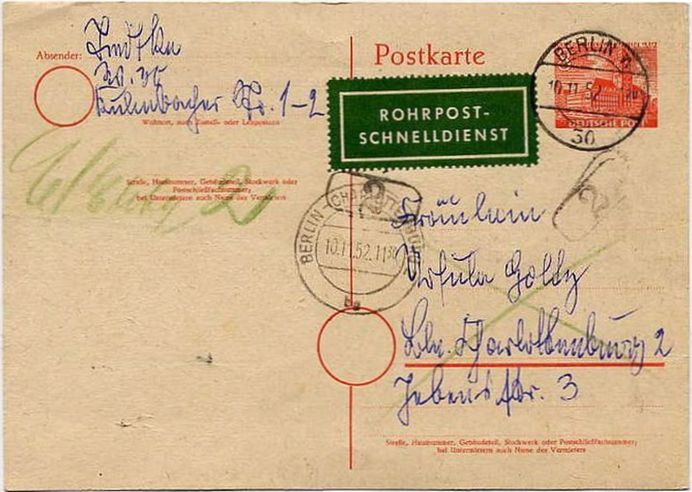 Absender:
W. 30
Kulmbacher Str. 1-2
Wohnort, auch Zustell- oder Leitpostamt
Straße, Hausnummer, Gebäudeteil, Stockwerk oder
Postschließfachnummer;
bei Untermietern auch Name des Vermieters
Postkarte
ROHRPOST-
SCHNELLDIENST
BERLIN W
10.11.52.
30
DEUTSCHE POST
2
BERLIN-CHARLOTTENBURG
10.11.52.11
Fräulein
Ursula
Bln. Charlottenburg 2
Jebensstr. 3
Straße, Hausnummer, Gebäudeteil, Stockwerk oder Postschließfachnummer;
bei Untermietern auch Name des Vermieters